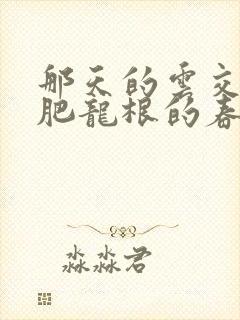 那天的雲交
肥龍根的春
淼淼君